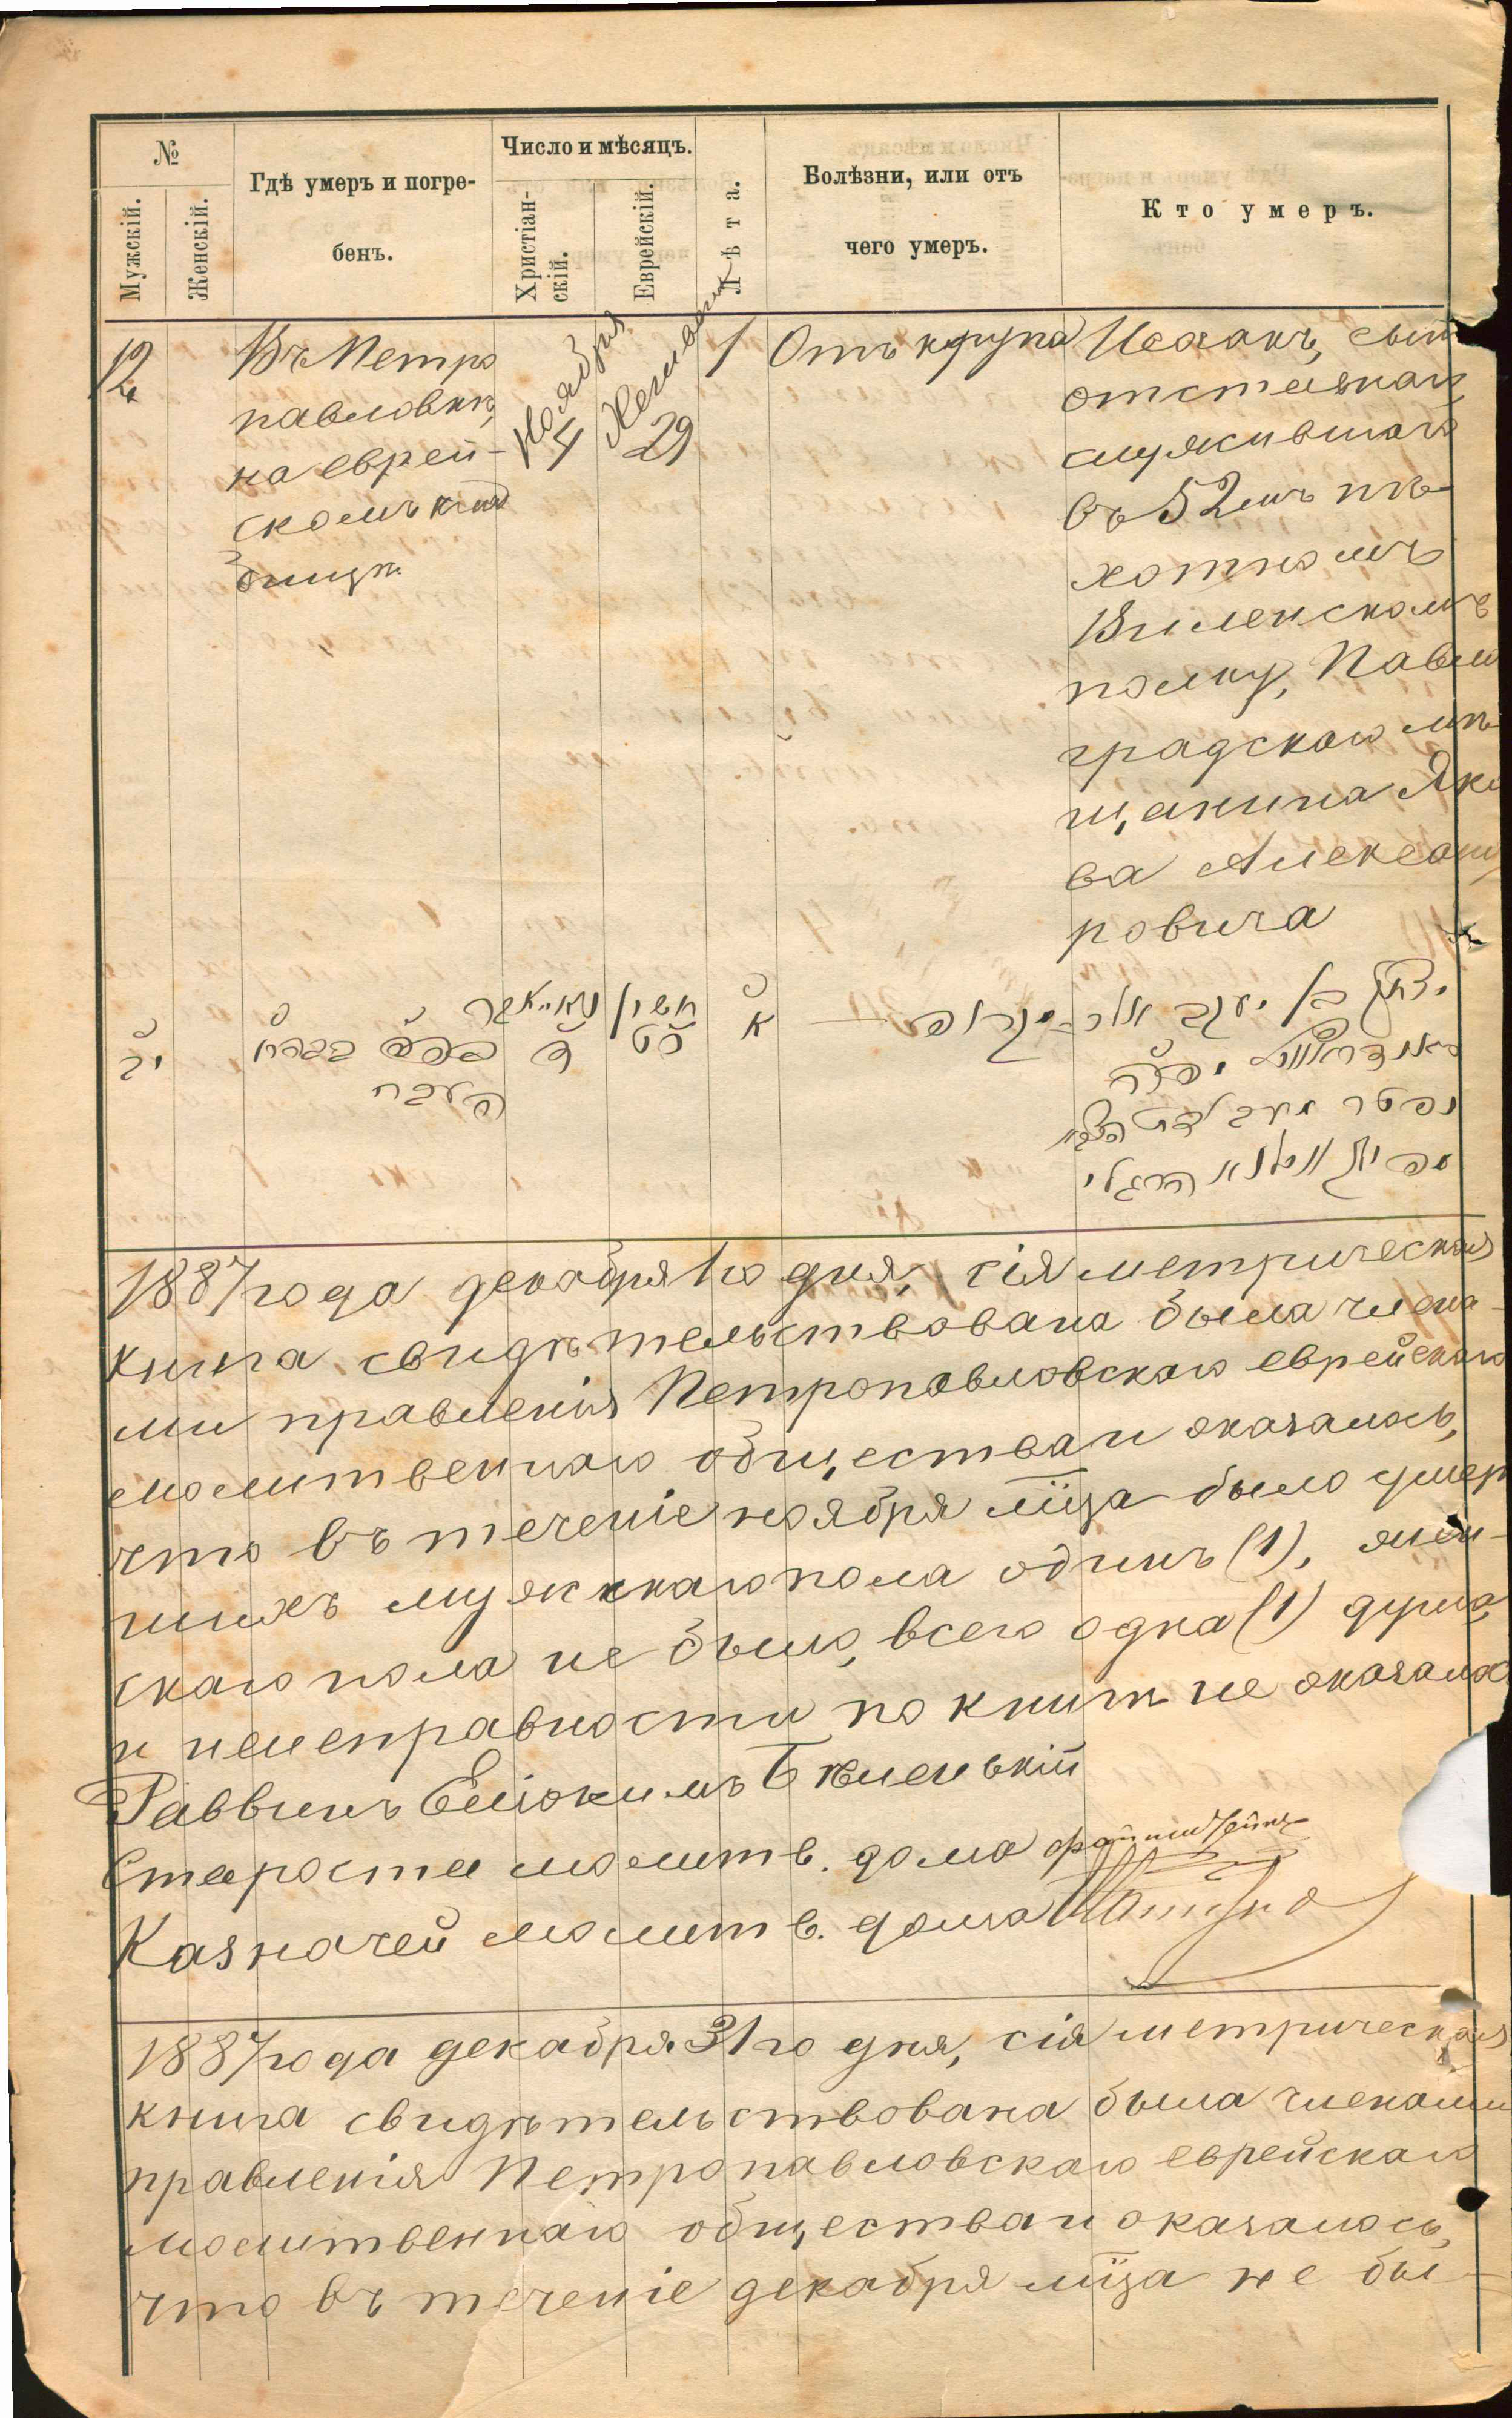 №
Мужскій.
Женскій.
Гдѣ умеръ и погре-
бенъ.
Число и мѣсяцъ.
Христіан-
скій.
Еврейскій.
Лѣта.
Болѣзни, или отъ
чего умеръ.
Кто умеръ.
12
Въ Петро
павловкѣ,
на еврей-
скомъ клад
бищѣ.
Ноября
4
Хешвана
29
1
Отъ крупа
Исаакъ, сынъ
отставнаго,
служившаго
въ 52мъ пѣ-
хотномъ
Виленскомъ
полку, Павло
градскаго мѣ-
щанина Яко
ва Александ
ровича
יב
א
חשון
כט
נאייאבר
ד
יצחק בן יעקב אלכ
1887 года декабря 1го дня, сія метрическая
книга свидѣтельствована была члена-
ми правленія Петропавловскаго еврейскаго
молитвеннаго общества и оказалось,
что въ теченіе ноября мѣца было умер
шихъ мужскаго пола одинъ (1), жен-
скаго пола не было, всего одна (1) душа,
и неисправности по книгѣ не оказалось
Раввинъ Еліокимъ Бѣленькій
Староста молитв. дома
Казначей молитв. дома
1887 года декабря 31го дня, сія метрическая
книга свидѣтельствована была членами
правленія Петропавловскаго еврейскаго
молитвеннаго общества и оказалось,
что въ теченіе декабря мѣца не бы-